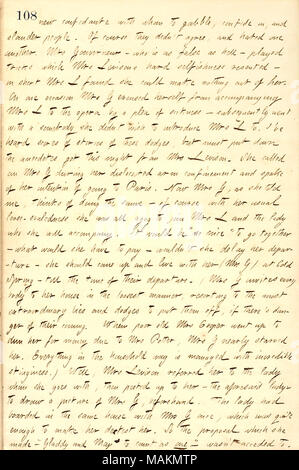 108
new confidante with whom to gabble, confide in, and
slander people. Of course they didn't agree, and hated one
another. Mrs Gouverneur — who is as false as hell — played
tricks which Mrs Levison's hard selfishness resented —
in short Mrs L found she could make nothing out of her.
On one occasion Mrs G excused herself from accompanying
Mrs L to the opera by a plea of sickness — subsequently went
with a somebody she didn't wish to introduce Mrs L to. I've
heard scores of stories of these dodges, but must put down
the anecdote got this night from Mrs Levison. She called
on Mrs G during her dislocated arm confinement and spoke
of her intention of going to Paris. Now Mrs G, as she told
me, thinks of doing the same — of course with her usual
loose-endedness she was all agog to join Mrs L and the lady
who she will accompany. It would be so nice to go together
— what would she have to pay — wouldn't she delay her depar-
ture — she should come up and live with her (Mrs G) at Cold
Spring — till the time of their departure. (Mrs G invites every
body to her house in the loosest manner, resorting to the most
extraordinary lies and dodges to put them off, if there's dan-
ger of their coming. When poor old Mrs Cooper went up to
dun her for money due to Mrs Potter, Mrs G nearly starved
her. Everything in the household way is managed with incredible
stinginess.) Well Mrs Levison referred her to the lady
whom she goes with, then posted up to her — the aforesaid lady —
to draw a picture of Mrs G, beforehand. The lady had
boarded in the same house with Mrs G once, which was quite
enough to make her detest her. So the proposal which she
made — Gladdy and May to count as one! — wasn't acceded to.